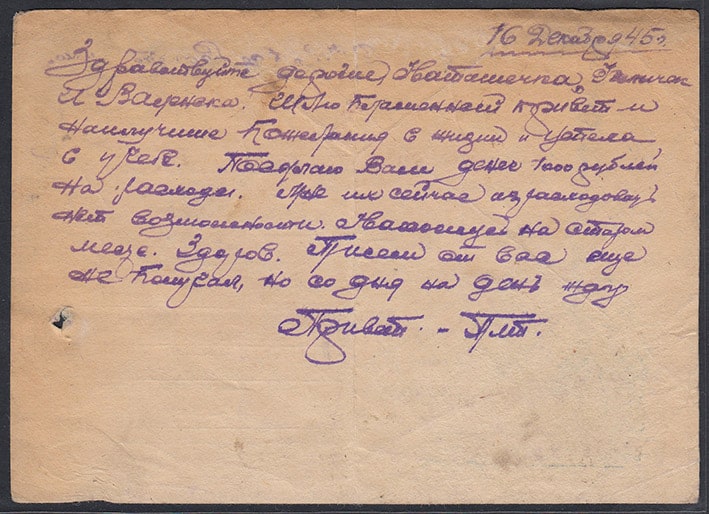 16 Декабря 45 г.
Здравствуйте дорогие, Наташечка,
и Валричка. Шлю пламенный привет и
наилучшие пожелания в жизни и успеха
в учебе. Посылаю Вам денег 1000 рублей
на расходы. Мне их сейчас израсходовать
нет возможности. Нахожусь на старом
месте. Здоров. Писем от вас еще
не получал, но со дня на день жду
Привет. -